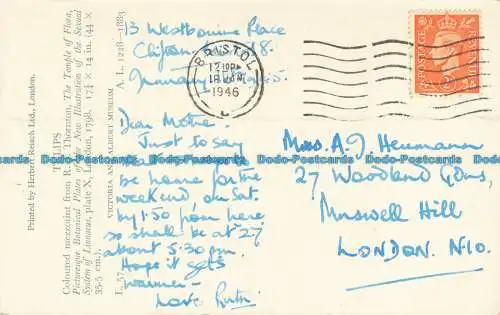 Printed by Herbert Reiach Ltd., London.
TULIPS
Coloured mezzotint from R. J. Thornton, The Temple of Flora,
Picturesque Botanical Plates of the New Illustration of the Sexual
System of Linnaeus, plate X, London, 1798. 17¼ × 14 in. (44 ×
35·5 cm.).
L. 57
VICTORIA AND ALBERT MUSEUM
A. L. 1228—1883
13 Westbourne Place
Clifton 8.
Dear Mother.
Just to say
be home for the
weekend on Sat.
by 1.50 from here
so shall be at 27
about 5.30 pm.
Hope it gets
warmer –
Love
BRISTOL
1946
C
POSTAGE
REVENUE
Mrs. A. J. Heumann
27 Woodland Gdns,
Muswell Hill
LONDON. N10.
Postcards bobbypostcards bobbypostcards